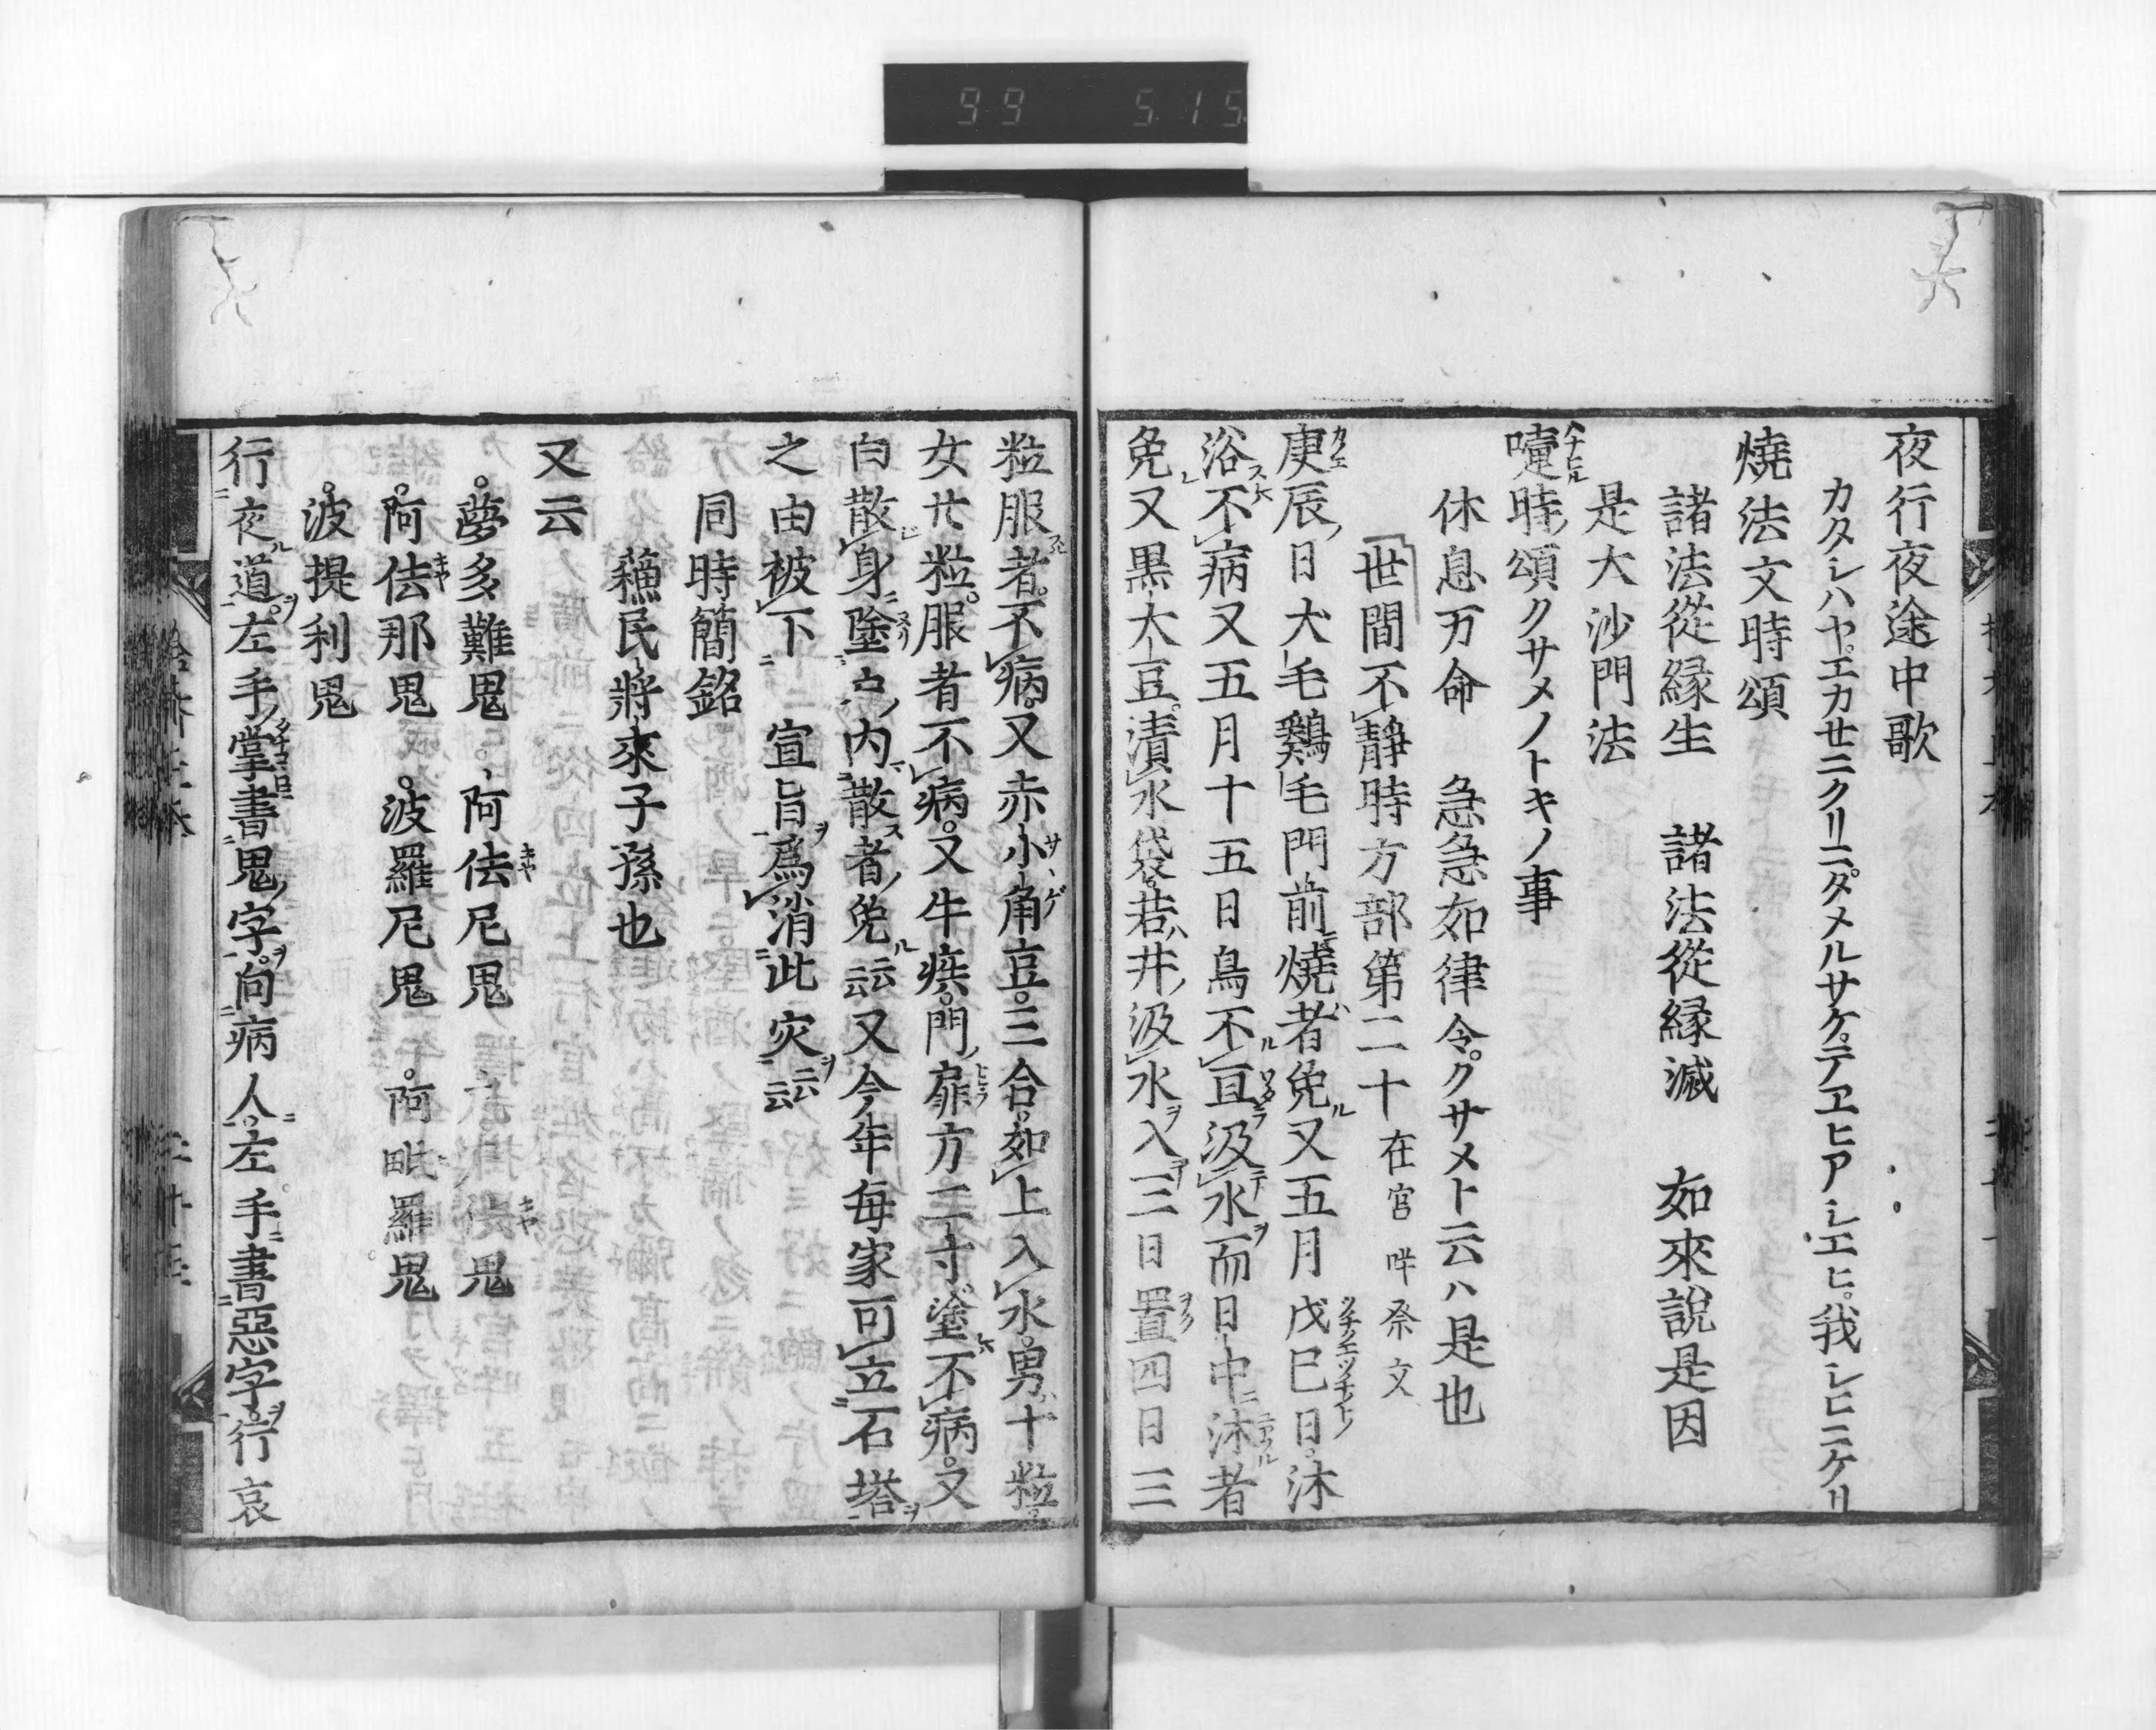 99 5.15
夜行夜途中歌
カタシハヤエカセニクリニタメルサケテヱヒアシエヒ我シヒニケリ
燒法文時頌
諸法從緣生 諸法從緣滅 如來說是因
是大沙門法
嚏時頌クサメノトキノ事
休息万命 急急如律令クサメト云ハ是也
世間不靜時方部第二十 在官咩祭文
庚辰日犬毛鷄毛門前燒者免又五月戊巳日沐
浴不病又五月十五日鳥不亘汲水而日中沐者
免又黒大豆漬水袋若井汲水入三日置四日三
粒服者不病又赤小角豆三合如上入水男十粒
女廿粒服者不病又牛疾門扉方二寸塗不病又
白散身塗內散者免云云又今年每家可立石塔
之由被下 宣旨爲消此灾云云
同時簡銘
穐民將來子孫也
又云
夢多難鬼 阿佉尼鬼 佉鬼
阿佉那鬼 波羅尼鬼 阿毗羅鬼
波提利鬼
行夜道左手掌書鬼字向病人左手書惡字行哀